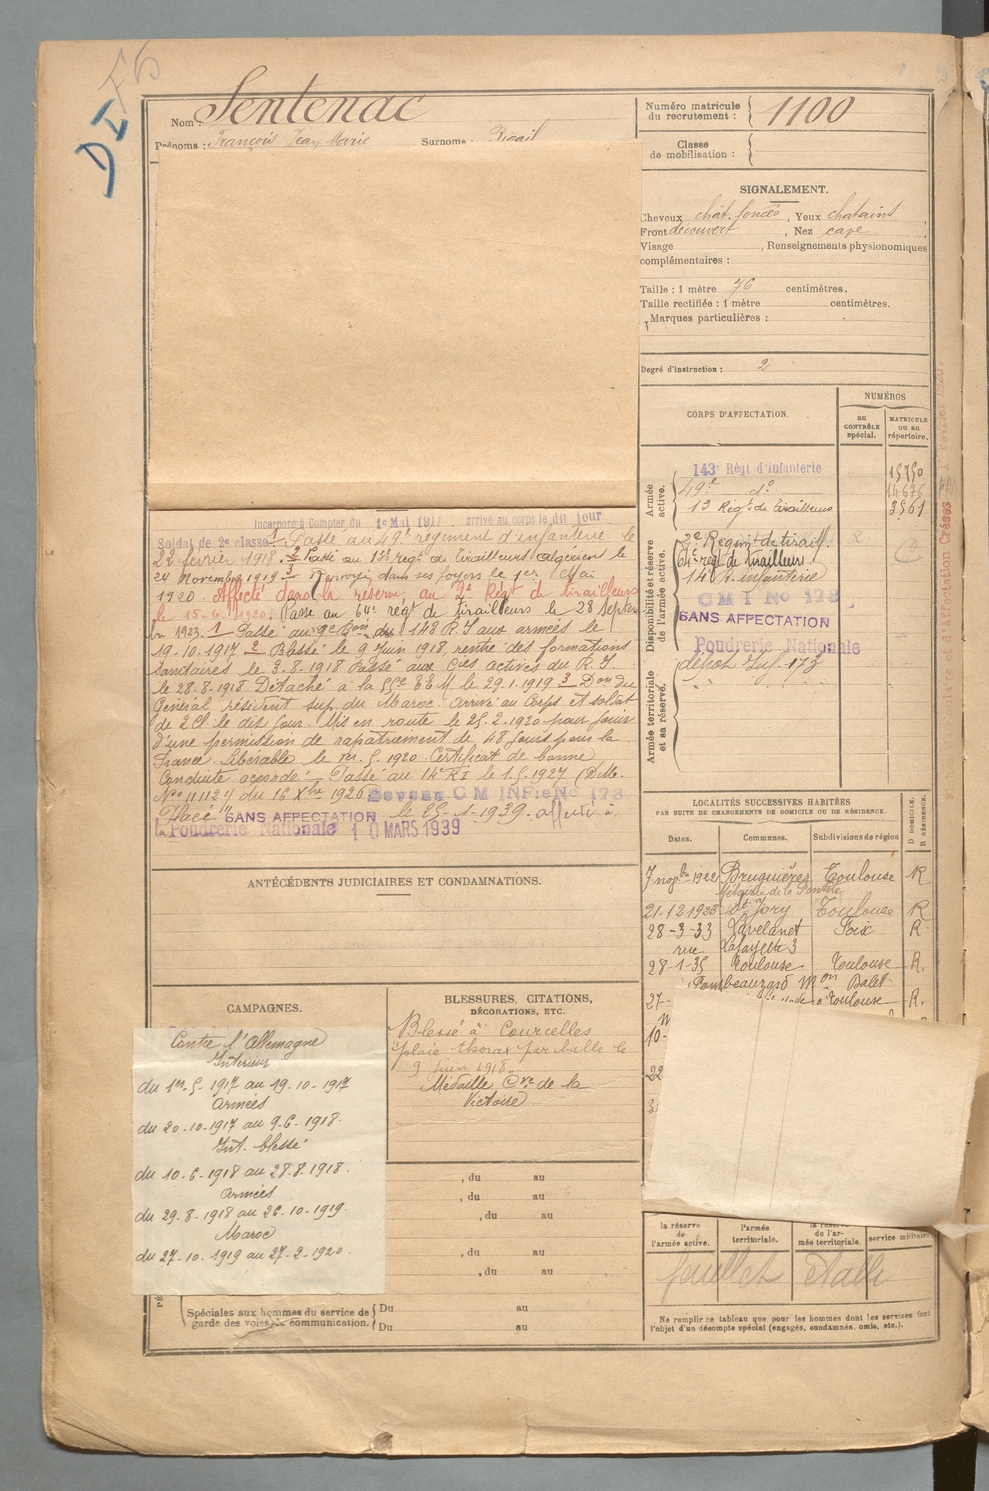 DI
Nom : Sentenac
Prénoms : François Jean Marie Surnoms : Rigail
Numéro matricule du recrutement : 1100
Classe de mobilisation :
SIGNALEMENT.
Cheveux chât. foncés, Yeux chatains
Front découvert, Nez cave
Visage , Renseignements physionomiques
complémentaires :
Taille : 1 mètre 76 centimètres.
Taille rectifiée : 1 mètre centimètres.
Marques particulières :
Degré d'instruction : 2
CORPS D'AFFECTATION.
NUMÉROS
au CONTRÔLE spécial.
MATRICULE ou au répertoire.
Armée active.
143e Régt d'Infanterie 15750
49e do 14676
13 Régt de Tirailleurs 3561
Disponibilité et réserve de l'armée active.
2e Regimt de tiraill.
64e régt de tirailleurs
14 R. infanterie
C M I No 178
SANS AFFECTATION
Poudrerie Nationale
Armée territoriale et sa réserve.
dépot Inf. 173
Incorporé à Compter du 1er Mai 1917. arrivé au corps le dit jour
Soldat de 2e classe. 1 Passé au 49e régiment d'infanterie le
22 février 1918. 2 Passé au 13e régt de Tirailleurs algérien le
24 Novembre 1919 3 Renvoyé dans ses foyers le 1er Mai
1920. Affecté dans la réserve au 2e Régt de tirailleurs
le 15-6-1920. Passé au 64e régt de tirailleurs le 28 Septem
bre 1923. 1 Passé au 9e Bon du 143 R.I aux armées le
19-10-1917 2 Blessé le 9 Juin 1918, rentré des formations
Sanitaires le 3.8.1918 Passé aux Cies actives du R.I.
le 28.8.1918 Détaché à la le 29.1.1919 3 Don du
Général résident sup. du Maroc. arrivé au Corps et soldat
de 2 Cl. le dit jour. Mis en route le 25.2.1920 pour jouir
d'une permission de rapatriement de 48 jours pour la
France. Libérable le 1er.5.1920 Certificat de bonne
Conduite accordé. Passé au 14e RI le 1.5.1927 (
No 11124 du 16 Xbre 1926. C M INFie No 178
Placé SANS AFFECTATION le 25-1-1939. affecté à
la Poudrerie Nationale 10 MARS 1939
ANTÉCÉDENTS JUDICIAIRES ET CONDAMNATIONS.
LOCALITÉS SUCCESSIVES HABITÉES
PAR SUITE DE CHANGEMENTS DE DOMICILE OU DE RÉSIDENCE.
D DOMICILE. R RÉSIDENCE.
Dates. Communes. Subdivisions de région
7 novbre 1922 Bruguières Toulouse R
Métairie de la
21-12-1923 St Jory Toulouse R
28-3-33 Lavelanet Foix R.
rue Lafayette 3
28-1-35 Toulouse Toulouse R.
Mon Balet
27- à Toulouse R.
10-
22
CAMPAGNES.
Contre l'Allemagne
Intérieur
du 1er.5.1917 au 19.10.1917
Armées
du 20.10.1917 au 9.6.1918.
Int. blessé
du 10.6.1918 au 28.8.1918.
Armées
du 29.8.1918 au 26.10.1919.
Maroc
du 27.10.1919 au 27.2.1920.
BLESSURES, CITATIONS,
DÉCORATIONS, ETC.
Blessé à Courcelles
plaie thorax par balle le
9 juin 1918.
Médaille Cve de la
Victoire
, du au
, du au
, du au
, du au
, du au
Spéciales aux hommes du service de garde des voies de communication.
Du au
Du au
la réserve de l'armée active.
l'armée territoriale.
la réserve de l'armée territoriale.
service militaire
feuillet établi
Ne remplir ce tableau que pour les hommes dont les services font
l'objet d'un décompte spécial (engagés, condamnés, omis, etc.).